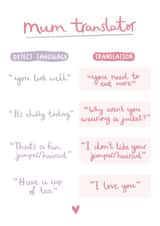 mum translator
DETECT LANGUAGE
TRANSLATION
"you look well"
"you need to
eat more"
"It's chilly today"
"Why aren't you
wearing a jacket?"
"That's a fun
jumper/haircut"
"I don't like your
jumper/haircut"
"Have a cup
of tea"
"I love you"